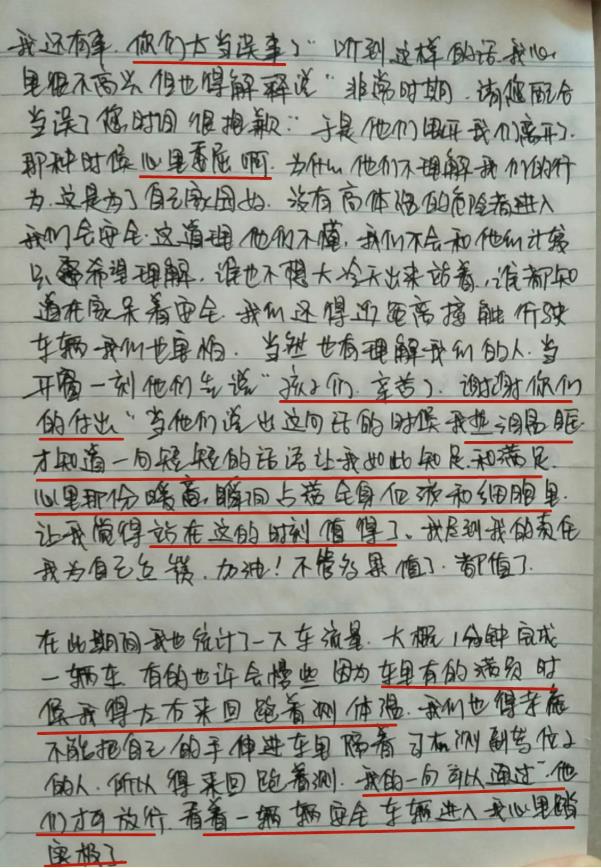 我还有事，你们太当误事了”听到这样的话，我心
里很不高兴但也得解释说“非常时期，请您配合
当误了您时间很抱歉”于是他们甩开我们离开了，
那种时候心里委屈啊，为什么他们不理解我们的行
为，这是为了自己家园好，没有高体温的危险者进入
我们会安全，这道理他们不懂，我们不会和他们计较
只希望理解，谁也不想大冷天出来站着，谁都知
道在家呆着安全，我们还得近距离接触行驶
车辆我们也害怕，当然也有理解我们的人，当
开窗一刻他们先说“孩子们，辛苦了，谢谢你们
的付出”当他们说出这句话的时候我热泪盈眶
才知道一句短短的话语让我如此知足和满足，
心里那份暖意，瞬间占满全身血液和细胞里，
让我觉得站在这的时刻值得了。我尽到我的责任
我为自己点赞，加油！不管多累值了，都值了。
在此期间我也统计了一下车流量，大概1分钟完成
一辆车，有的也许会慢些因为车里有的满员时
候我得左右来回跑着测体温，我们也得
不能把自己的手伸进车里隔着司机测副驾位上
的人，所以得来回跑着测，我的一句可以通过“他
们才可放行，看着一辆辆安全车辆进入我心里踏
实极了